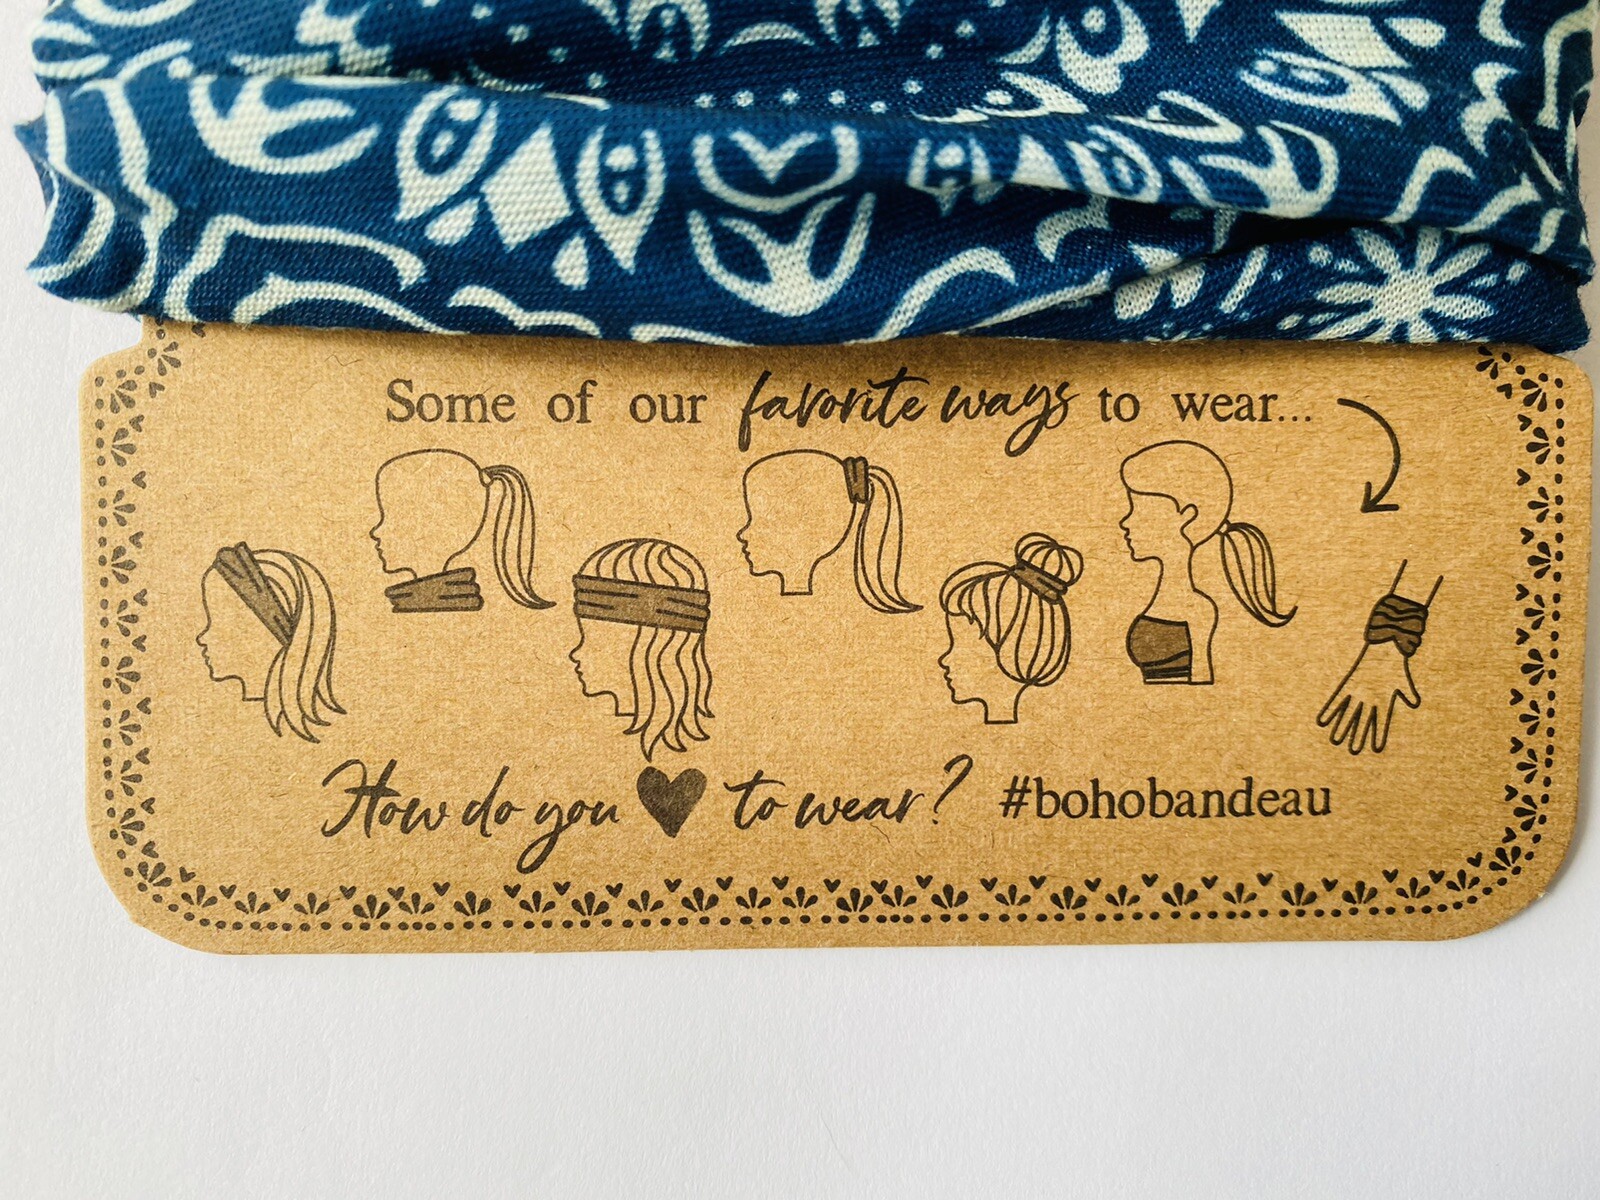 Some of our favorite ways to wear...
How do you ♥ to wear? #bohobandeau